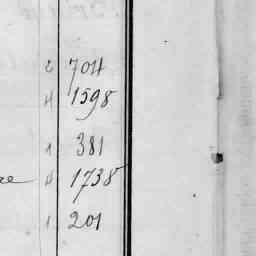 2 704
4 1598
1 381
4 1738
1 201